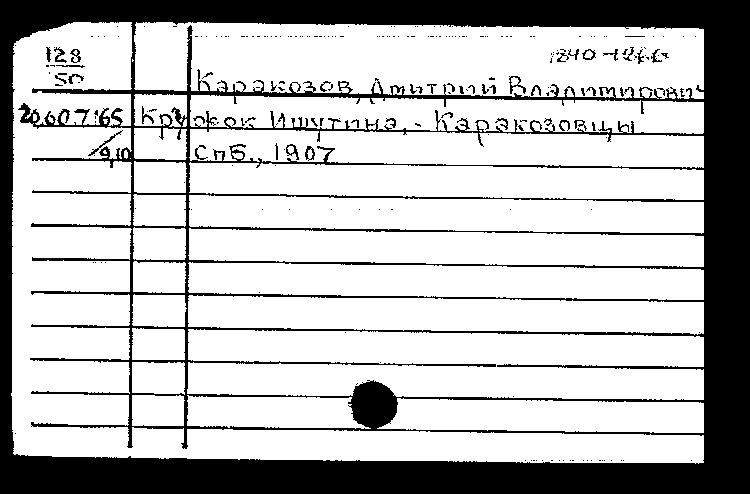 128 1840-1866
50
Каракозов, Дмитрий Владимирович
20.607.65 Кружок Ишутина, - Каракозовцы
9,10 Спб., 1907